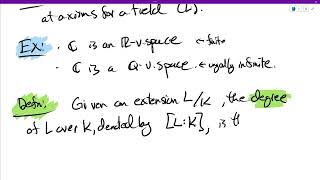 at axioms for a field (L).
Ex: ℂ is an ℝ-v.space ← finite
· ℂ is a ℚ-v.space ← infinite.
Defn: Given an extension L/K, the degree
of L over K, denoted by [L:K], is th